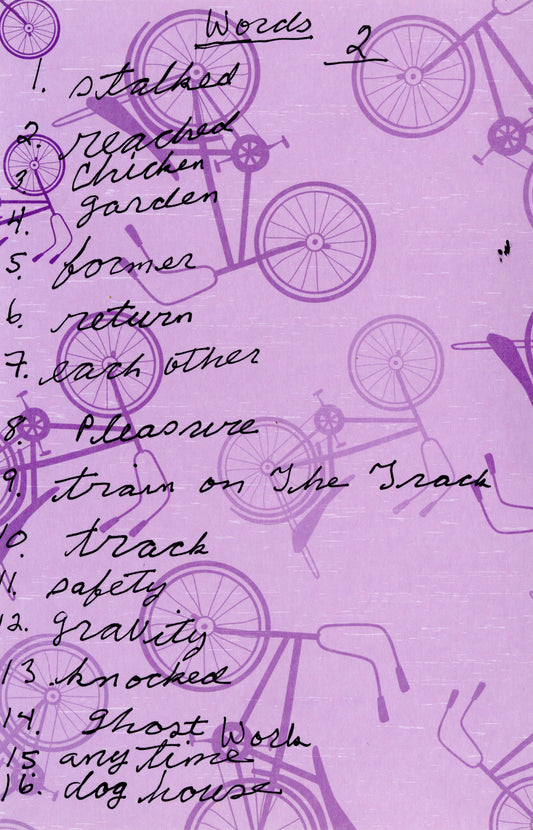 Words
2
1. stalked
2. reached
3 Chicken
4. garden
5. former
6. return
7. each other
8. Pleasure
9. train on The Track
10. track
11. safety
12. gravity
13 knocked
14. Ghost Work
15 any time
16. dog house